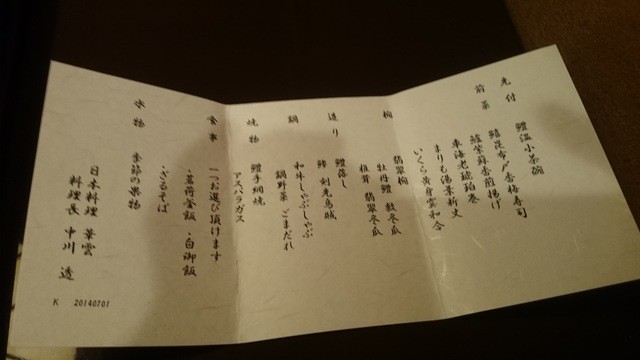 先付
鱧温小茶碗
前菜
鱧昆布〆香梅寿司
鱸紫蘇香煎揚げ
車海老琥珀巻
まりも湯葉新丈
いくら黄身雲和合
椀
翡翠椀
牡丹鱧 鼓冬瓜
椎茸 翡翠冬瓜
造り
鱧落し
鯵 剣先烏賊
鍋
和牛しゃぶしゃぶ
鍋野菜 ごまだれ
焼物
鱧手綱焼
アスパラガス
食事
一つお選び頂けます
・茗荷釜飯 ・白御飯
・ざるそば
水物
季節の果物
日本料理 華雲
料理長 中川 透
K 20140701